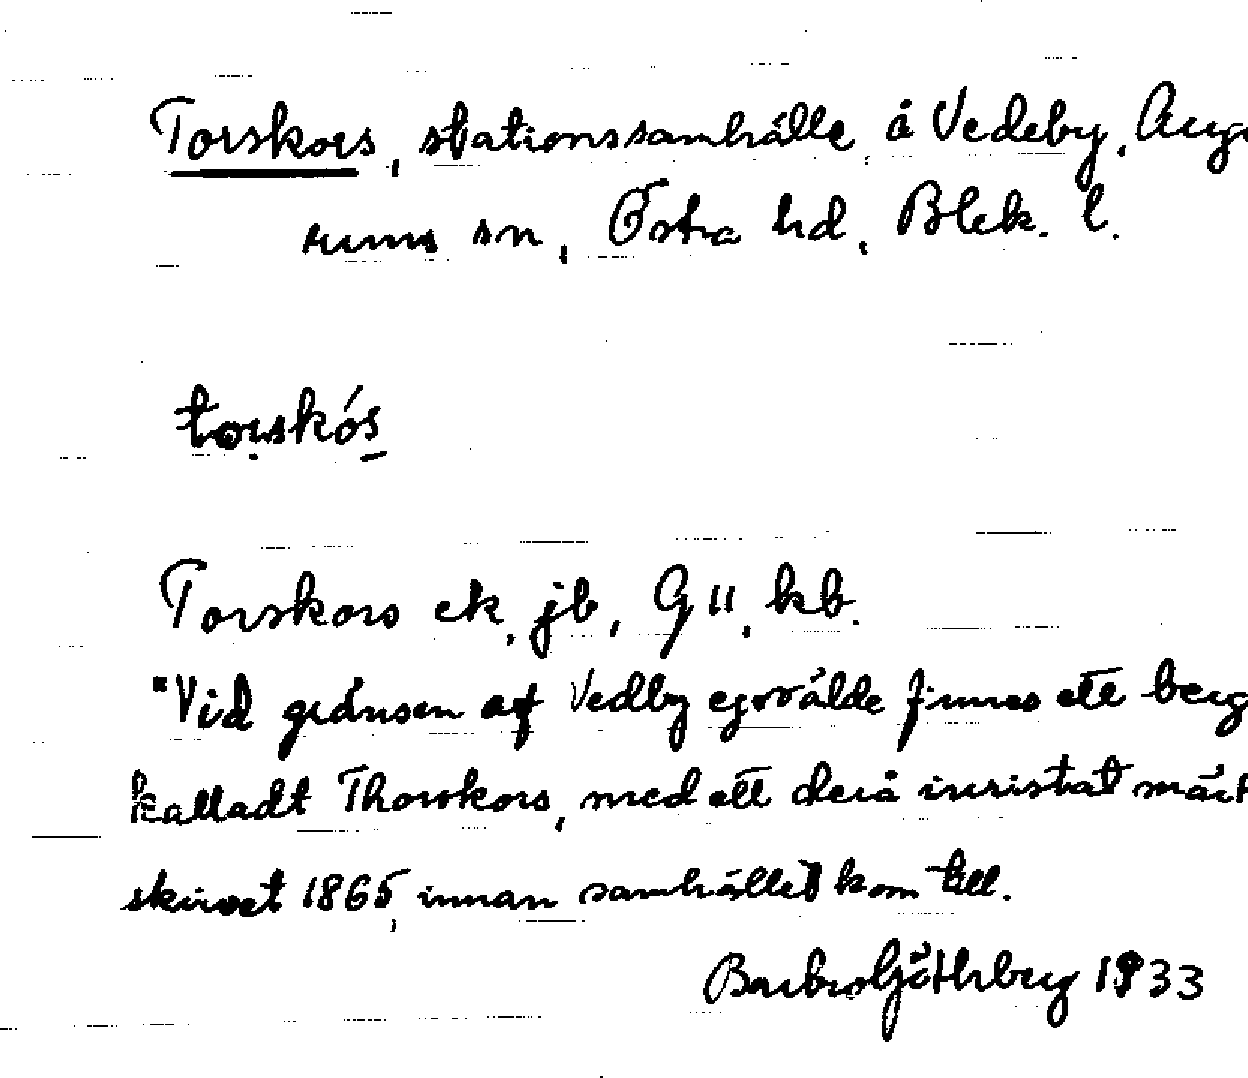 Torskors, stationssamhälle å Vedeby, Auge
rums sn, Östra hd, Blek. l.
torskó́s
Torskors ek, jb, G 11, kb.
"Vid gränsen af Vedby egovälde finnes ett berg
kalladt Thorskors, med ett derå inristat märk
skrivet 1865, innan samhället kom till.
Barbro Göthberg 1933